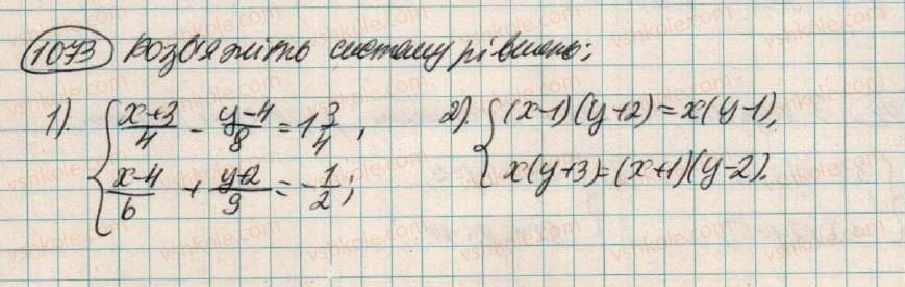 1073 Розв'яжіть систему рівнянь:
1). { (x+3)/4 - (y-4)/8 = 1 3/4, 2). { (x-1)(y+2)=x(y-1),
(x-4)/6 + (y+2)/9 = -1/2; x(y+3)=(x+1)(y-2).
vshkole.com